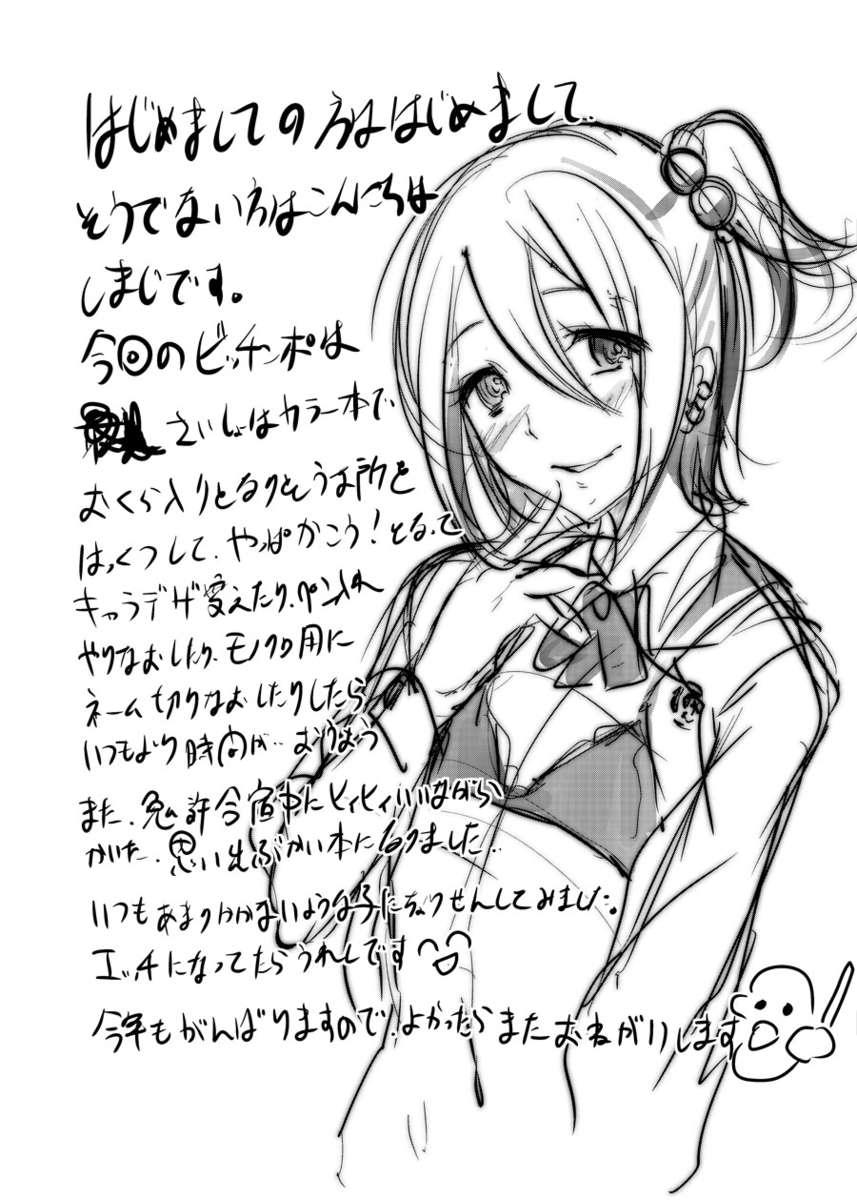 はじめましての方ははじめまして
そうでない方はこんにちは
しまじです。
今回のビッチンポは
さいしょはカラー本で
おくら入りとなりそうな所を
はっくつして、やっぱかこう!となって
キャラデザ変えたり、ペン入れ
やりなおしたり、モノクロ用に
ネーム切りなおしたりしたら
いつもより時間が…おうおう
また、免許合宿中にヒィヒィいいながら
かいた、思い出ぶかい本になりました…
いつもあまりかかないような子にちょうせんしてみました。
エッチになってたらうれしです
今年もがんばりますので、よかったらまたおねがいします